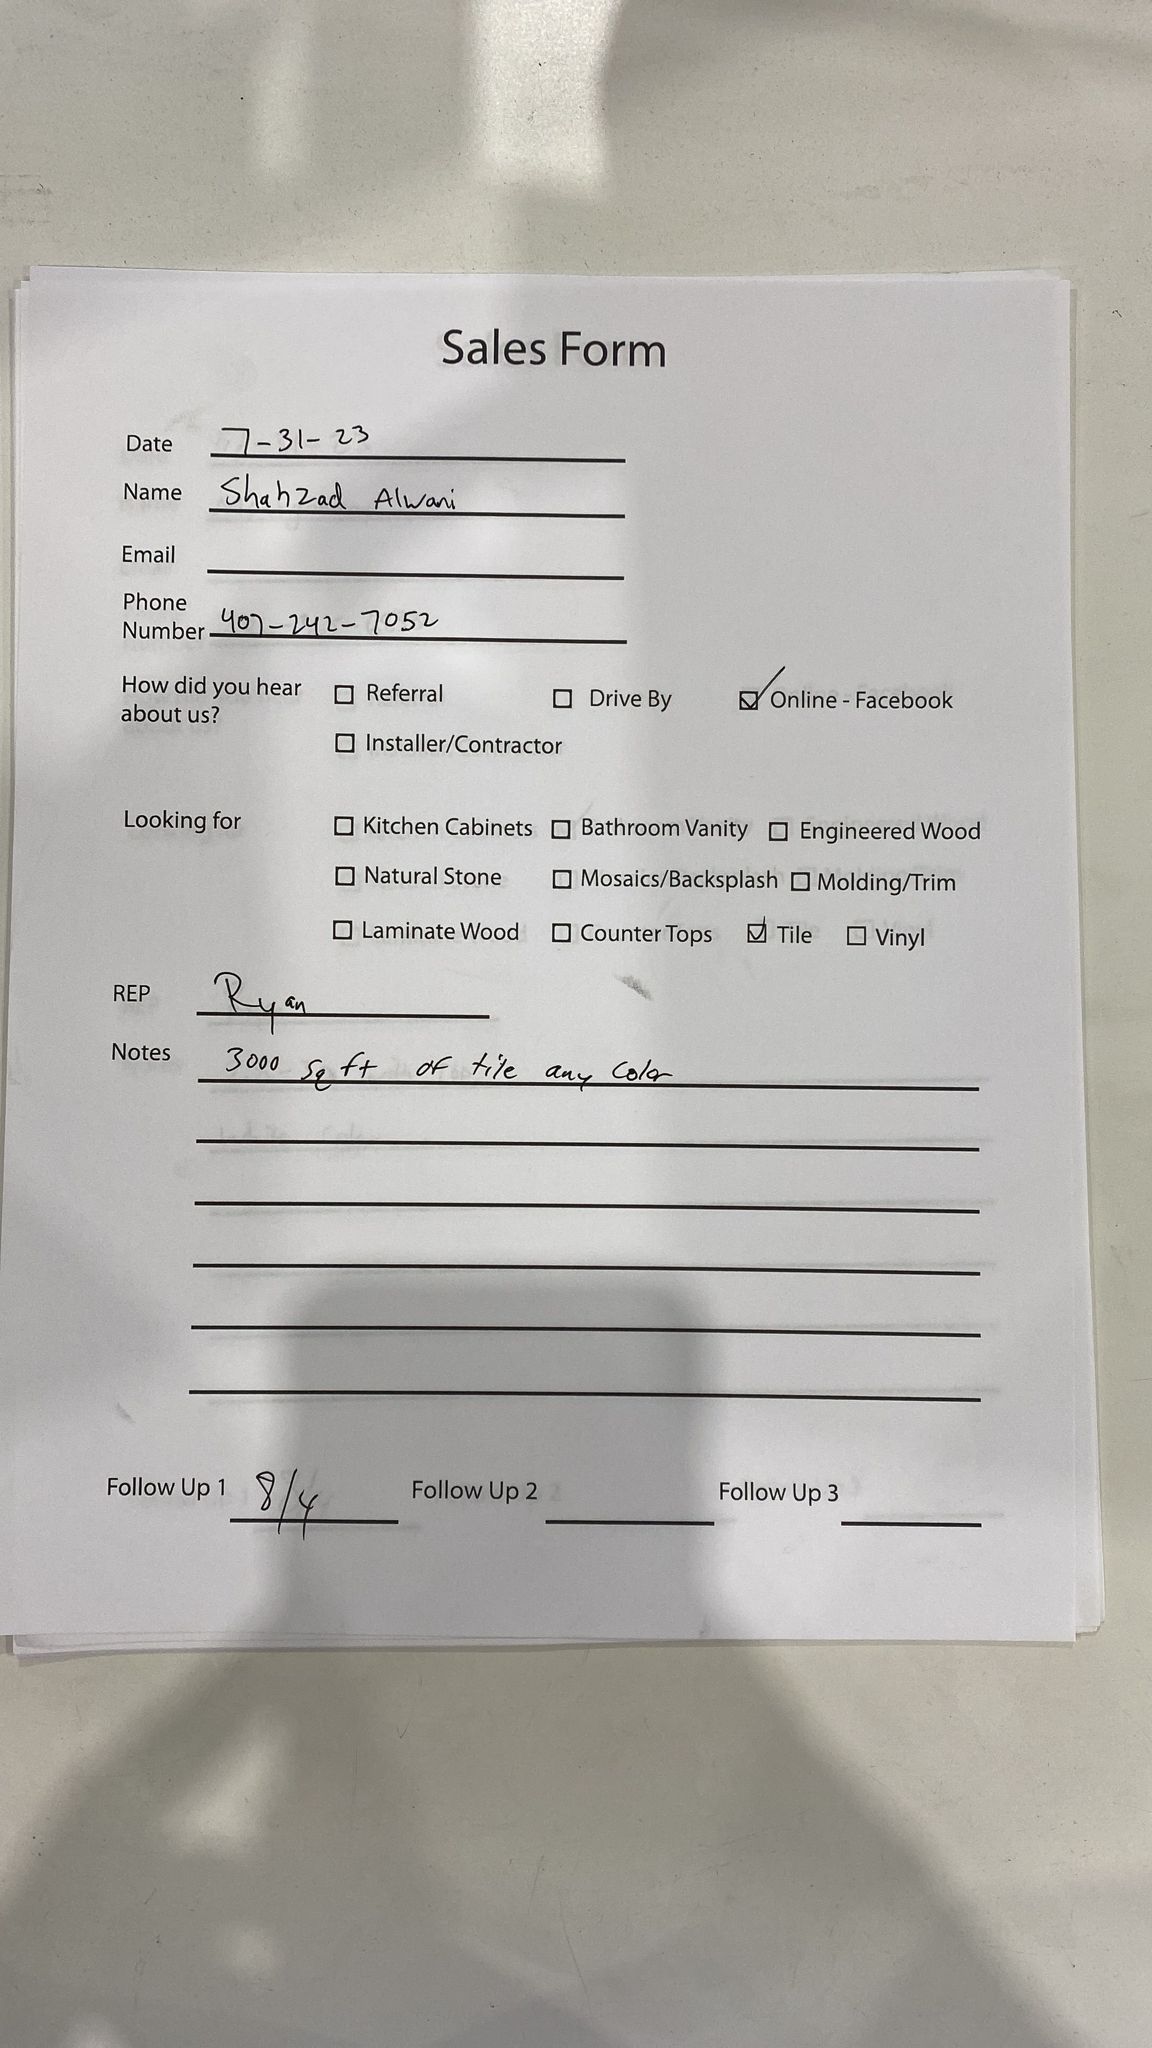 Sales Form
Date 7-31-23
Name Shahzad Alwani
Email
Phone
Number 407-242-7052
How did you hear
about us?
☐ Referral ☐ Drive By ☑ Online - Facebook
☐ Installer/Contractor
Looking for ☐ Kitchen Cabinets ☐ Bathroom Vanity ☐ Engineered Wood
☐ Natural Stone ☐ Mosaics/Backsplash ☐ Molding/Trim
☐ Laminate Wood ☐ Counter Tops ☑ Tile ☐ Vinyl
REP Ryan
Notes 3000 sq ft of tile any color
Follow Up 1 8/4 Follow Up 2 Follow Up 3